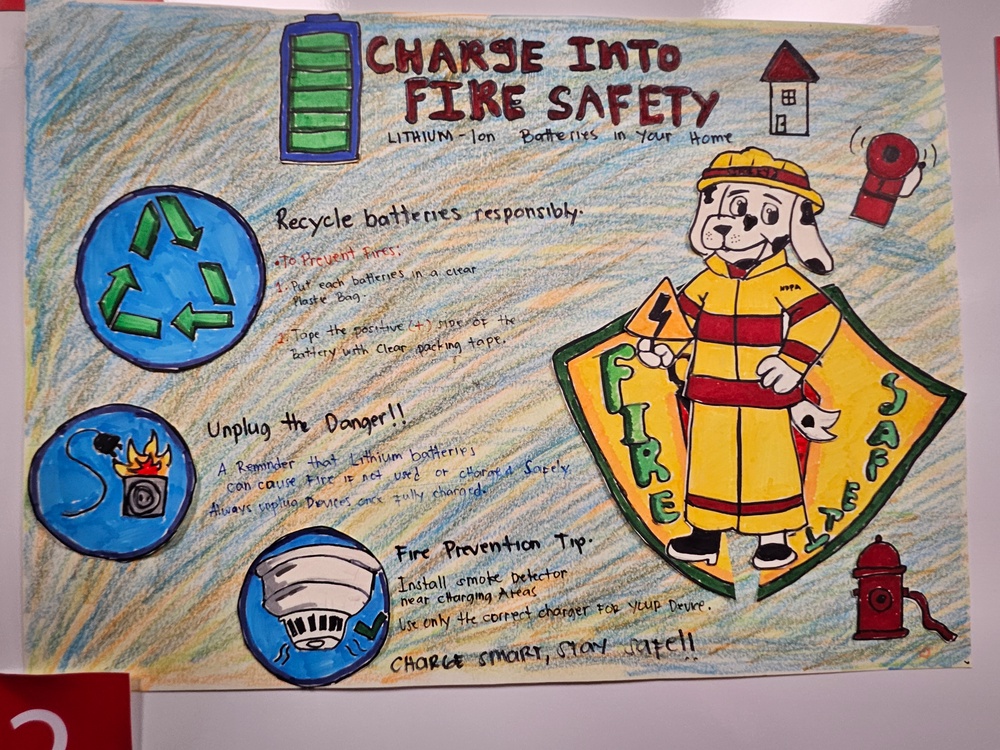 CHARGE INTO
FIRE SAFETY
LITHIUM-Ion Batteries in Your Home
Recycle batteries responsibly.
•To Prevent Fires:
1. Put each batteries in a clear
Plastc Bag.
2. Tape the positive (+) side of the
Battery with Clear packing tape.
Unplug the Danger!!
A Reminder that Lithium batteries
can cause Fire if not used or charged Safely.
Always unplug Devices once fully charged.
Fire Prevention Tip.
Install smoke Detector
near Charging Areas
Use only the correct charger For your Device.
CHARGE smart, stay safe!!
NFPA
FIRE
SAFETY
2